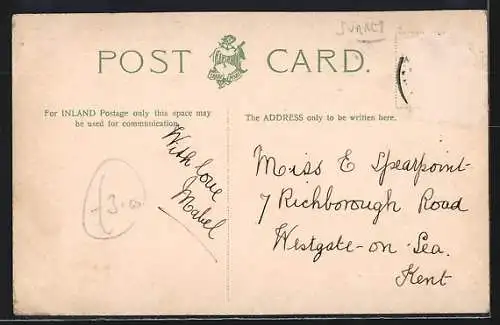 SURREY
POST CARD.
For INLAND Postage only this space may
be used for communication.
The ADDRESS only to be written here.
With love
Mabel
£3.0
Miss E Spearpoint
7 Richborough Road
Westgate-on-Sea.
Kent